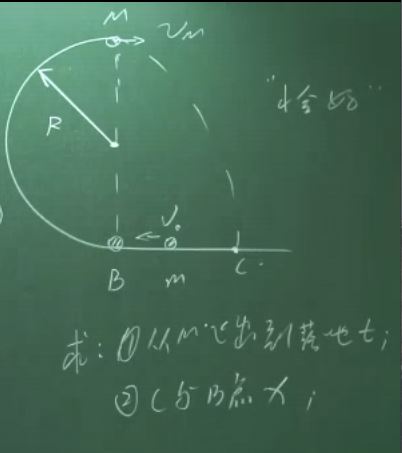 M
V_M
"恰好"
R
V₀
B
m
C.
求: ①从M飞出到落地t;
②C与B点X;